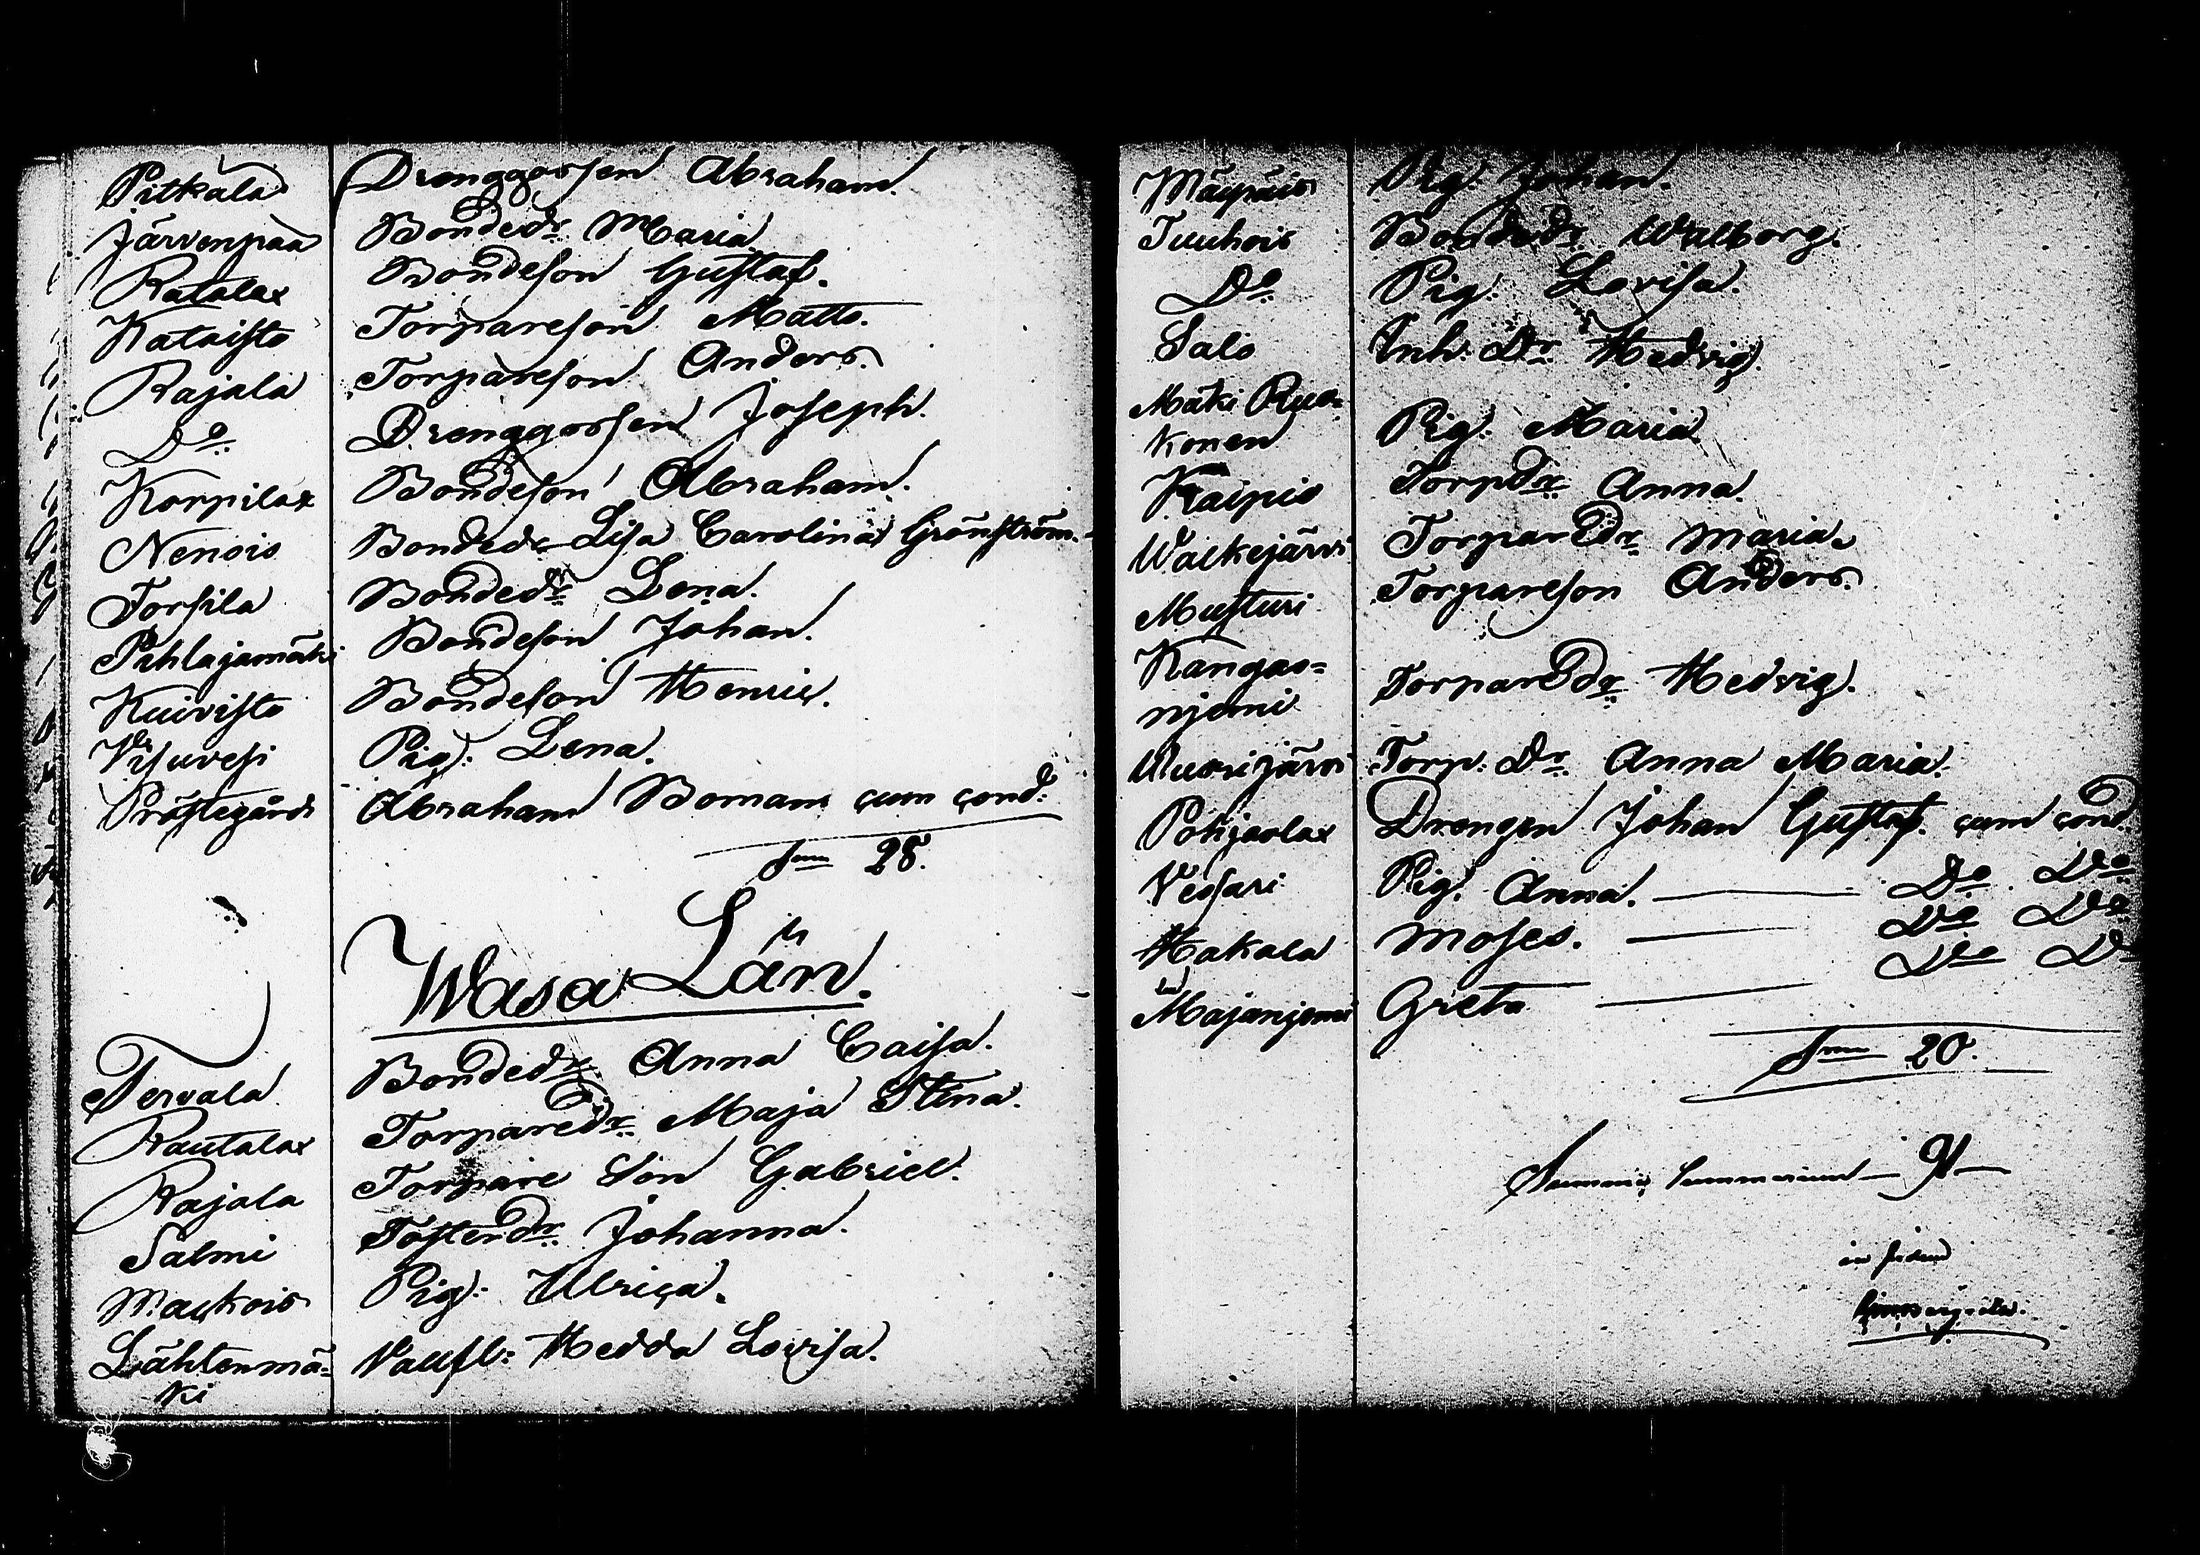 Pitkälä Drenggossen Abraham.
Järvenpää Bondedr. Maria
Ratalax Bondeson Gustaf.
Kataisto Torpareson Matts.
Rajala Torpareson Anders.
Do. Drenggossen Joseph.
Korpilax Bondeson Abraham.
Nenois Bondedr Lisa Carolina Grönström.
Torsila Bondedr. Lena.
Pihlajamäki Bondeson Johan.
Kuivisto Bondeson Henric.
Visuvesi Pig. Lena.
Prästegård Abraham Boman cum cond.
Sum 28.
Wasa Län.
Tervala Bondedr. Anna Caisa.
Rautalax Torparedr. Maja Stina.
Rajala Torpare Son Gabriel.
Salmi Fosterdr. Johanna.
Mackois Pig. Ulrica.
Lähtenmä-
ki Vallfl: Hedda Lovisa.
Pig. Johan.
Tuuhois Bondedr. Walborg.
Do. Pig. Lovisa.
Salo Inh: Dr. Hedvig.
Mäki Ruo-
konen Pig. Maria
Kaipio Torpdr. Anna.
Walkejärvi Torparedr. Maria.
Musturi Torpareson Anders.
Kangas=
njemi Torparedr. Hedvig.
Wuorijärvi Torp. Dr. Anna Maria.
Pohjaslax Drengen Johan Gustaf. cum cond.
Vessari Pig. Anna. — Do. Do
Hakala Moses. — Do Do
Majanjemi Greta — Do Do
Sum 20.
Summa Summarum — 91 —
in fidem